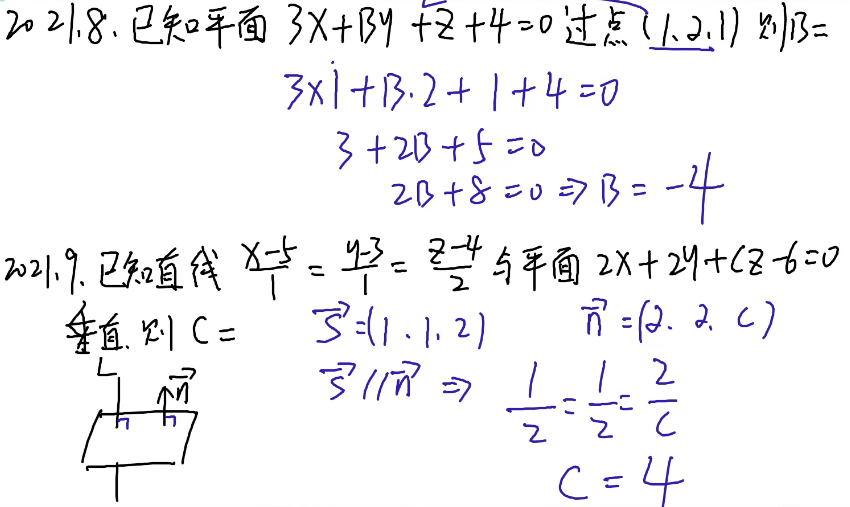 2021.8. 已知平面 3X+By+z+4=0 过点 (1.2.1) 则B=
3×1+B·2+1+4=0
3+2B+5=0
2B+8=0 ⇒ B=-4
2021.9. 已知直线 \frac{x-5}{1} = \frac{y-3}{1} = \frac{z-4}{2} 与平面 2X+2y+Cz-6=0
垂直. 则 C= \vec{S}=(1.1.2) \vec{n}=(2.2.C)
\vec{S}//\vec{n} ⇒ \frac{1}{2}=\frac{1}{2}=\frac{2}{C}
L \vec{n}
C=4